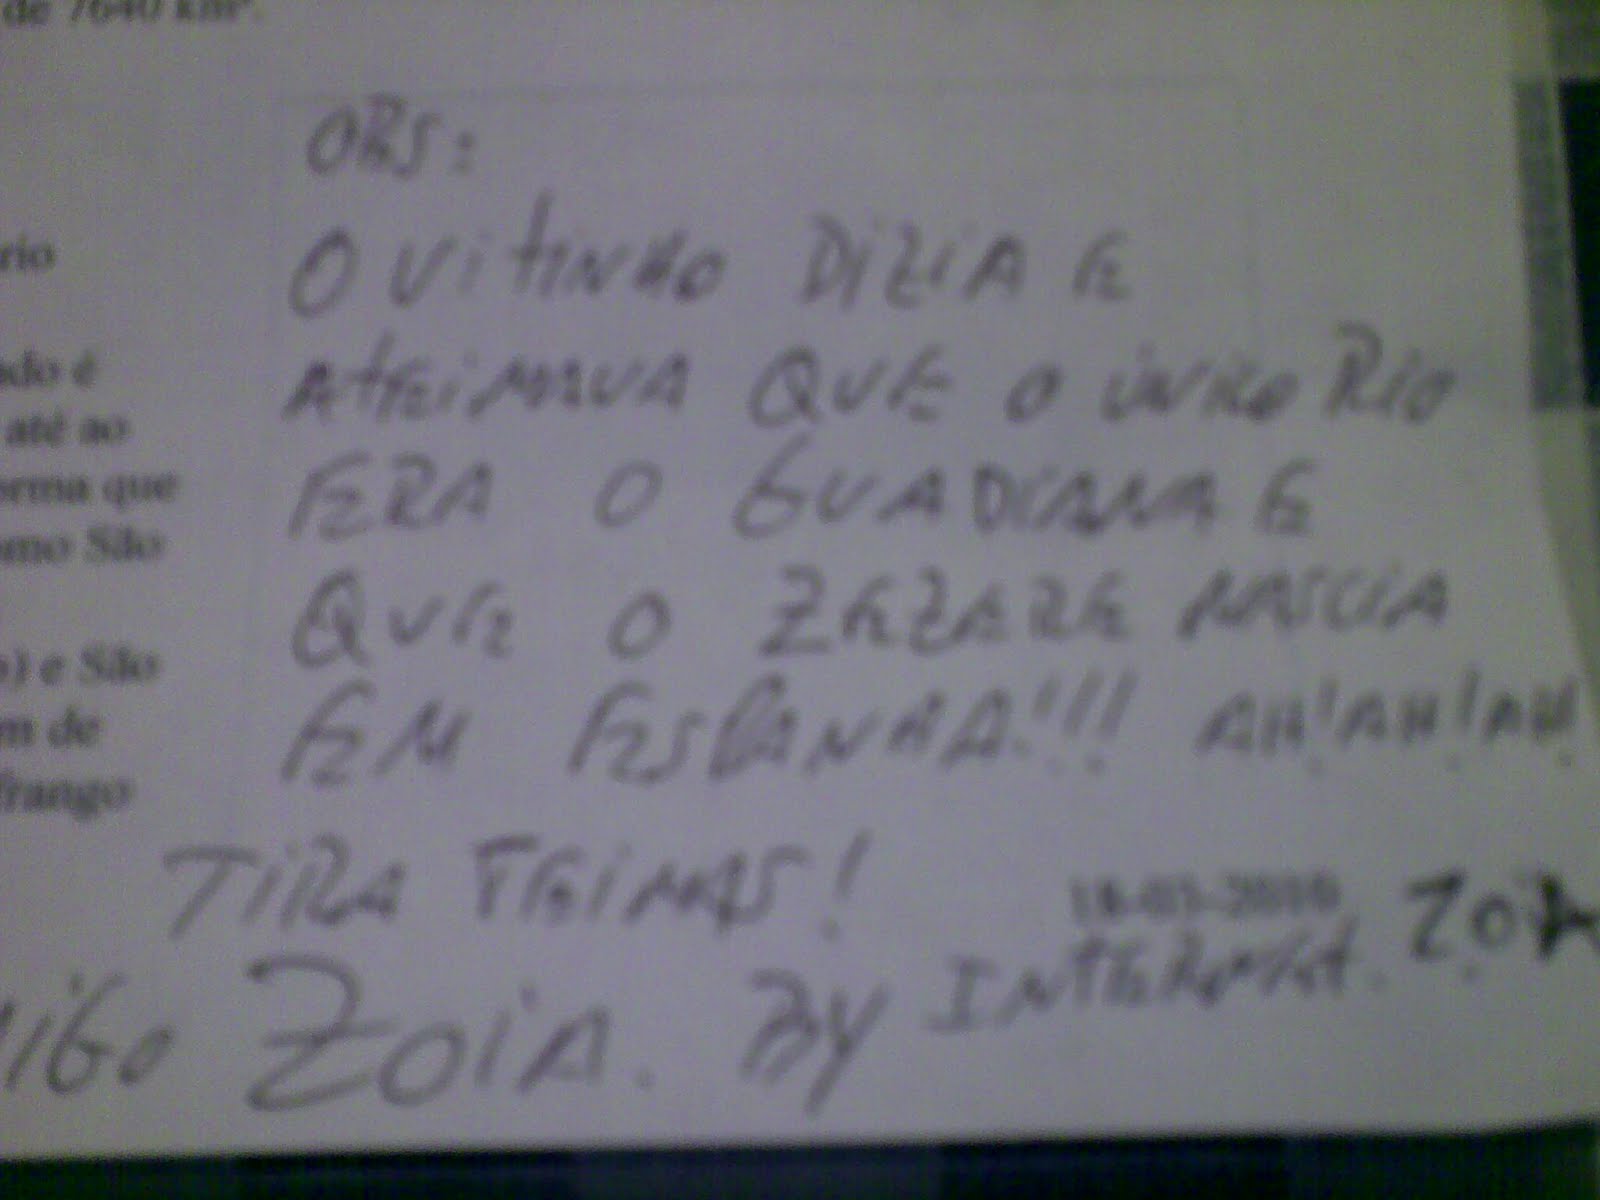 de 7640 km².
OBS:
O VITINHO DIZIA E
rio
ATEIMAVA QUE O ÚNICO RIO
ado é
até ao
ERA O GUADIANA E
orma que
omo São
QUE O ZEZERE NASCIA
o) e São
EM ESPANHA!!! AH!AH!AH!
m de
frango
TIRA TEIMAS!
18-03-2010
MIGO ZOIA. BY INTERNET. ZOIA